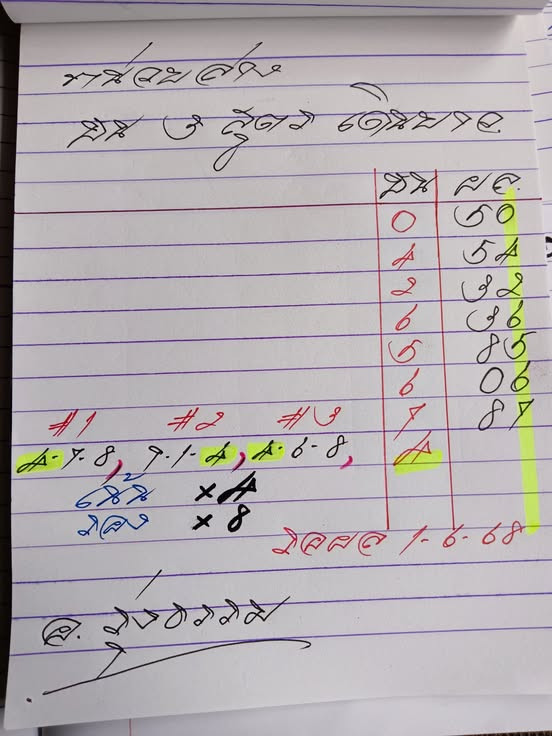 หน่วยล่าง
ชน ๓ สูตร เดินยาว
ชน ผล.
0 50
4 54
2 32
6 36
5 85
6 06
7 87
#1 #2 #3
4-7-8, 9-1-4, 4-6-8, 4
เน้น ×4
รอง ×8
รอผล 1-6-68
อ. รุ่งธรรม